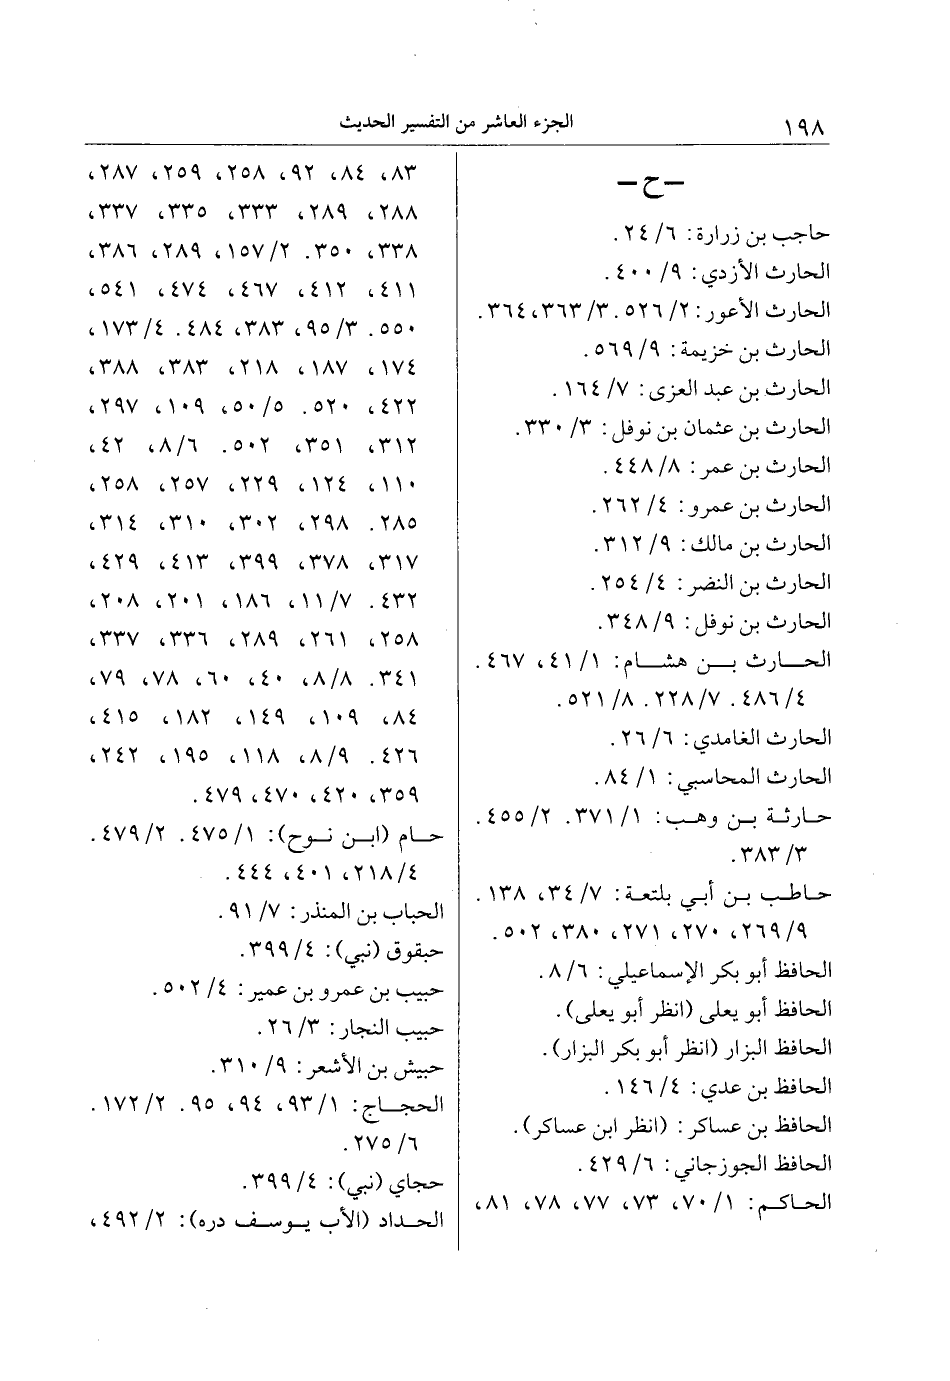 ١٩٨
الجزء العاشر من التفسير الحديث
– ح –
حاجب بن زرارة: ٦/ ٢٤.
الحارث الأزدي: ٩/ ٤٠٠.
الحارث الأعور: ٢/ ٥٢٦. ٣/ ٣٦٣، ٣٦٤.
الحارث بن خزيمة: ٩/ ٥٦٩.
الحارث بن عبد العزى: ٧/ ١٦٤.
الحارث بن عثمان بن نوفل: ٣/ ٣٣٠.
الحارث بن عمر: ٨/ ٤٤٨.
الحارث بن عمرو: ٤/ ٢٦٢.
الحارث بن مالك: ٩/ ٣١٢.
الحارث بن النضر: ٤/ ٢٥٤.
الحارث بن نوفل: ٩/ ٣٤٨.
الحارث بن هشام: ١/ ٤١، ٤٦٧.
٤/ ٤٨٦. ٧/ ٢٢٨. ٨/ ٥٢١.
الحارث الغامدي: ٦/ ٢٦.
الحارث المحاسبي: ١/ ٨٤.
حارثة بن وهب: ١/ ٣٧١. ٢/ ٤٥٥.
٣/ ٣٨٣.
حاطب بن أبي بلتعة: ٧/ ٣٤، ١٣٨.
٩/ ٢٦٩، ٢٧٠، ٢٧١، ٣٨٠، ٥٠٢.
الحافظ أبو بكر الإسماعيلي: ٦/ ٨.
الحافظ أبو يعلى (انظر أبو يعلى).
الحافظ البزار (انظر أبو بكر البزار).
الحافظ بن عدي: ٤/ ١٤٦.
الحافظ بن عساكر: (انظر ابن عساكر).
الحافظ الجوزجاني: ٦/ ٤٢٩.
الحاكم: ١/ ٧٠، ٧٣، ٧٧، ٧٨، ٨١،
٨٣، ٨٤، ٩٢، ٢٥٨، ٢٥٩، ٢٨٧،
٢٨٨، ٢٨٩، ٣٣٣، ٣٣٥، ٣٣٧،
٣٣٨، ٣٥٠. ٢/ ١٥٧، ٢٨٩، ٣٨٦،
٤١١، ٤١٢، ٤٦٧، ٤٧٤، ٥٤١،
٥٥٠. ٣/ ٩٥، ٣٨٣، ٤٨٤. ٤/ ١٧٣،
١٧٤، ١٨٧، ٢١٨، ٣٨٣، ٣٨٨،
٤٢٢، ٥٢٠. ٥/ ٥٠، ١٠٩، ٢٩٧،
٣١٢، ٣٥١، ٥٠٢. ٦/ ٨، ٤٢،
١١٠، ١٢٤، ٢٢٩، ٢٥٧، ٢٥٨،
٢٨٥. ٢٩٨، ٣٠٢، ٣١٠، ٣١٤،
٣١٧، ٣٧٨، ٣٩٩، ٤١٣، ٤٢٩،
٤٣٢. ٧/ ١١، ١٨٦، ٢٠١، ٢٠٨،
٢٥٨، ٢٦١، ٢٨٩، ٣٣٦، ٣٣٧،
٣٤١. ٨/ ٨، ٤٠، ٦٠، ٧٨، ٧٩،
٨٤، ١٠٩، ١٤٩، ١٨٢، ٤١٥،
٤٢٦. ٩/ ٨، ١١٨، ١٩٥، ٢٤٢،
٣٥٩، ٤٢٠، ٤٧٠، ٤٧٩.
حام (ابن نوح): ١/ ٤٧٥. ٢/ ٤٧٩.
٤/ ٢١٨، ٤٠١، ٤٤٤.
الحباب بن المنذر: ٧/ ٩١.
حبقوق (نبي): ٤/ ٣٩٩.
حبيب بن عمرو بن عمير: ٤/ ٥٠٢.
حبيب النجار: ٣/ ٢٦.
حبيش بن الأشعر: ٩/ ٣١٠.
الحجاج: ١/ ٩٣، ٩٤، ٩٥. ٢/ ١٧٢.
٦/ ٢٧٥.
حجاي (نبي): ٤/ ٣٩٩.
الحداد (الأب يوسف دره): ٢/ ٤٩٢،